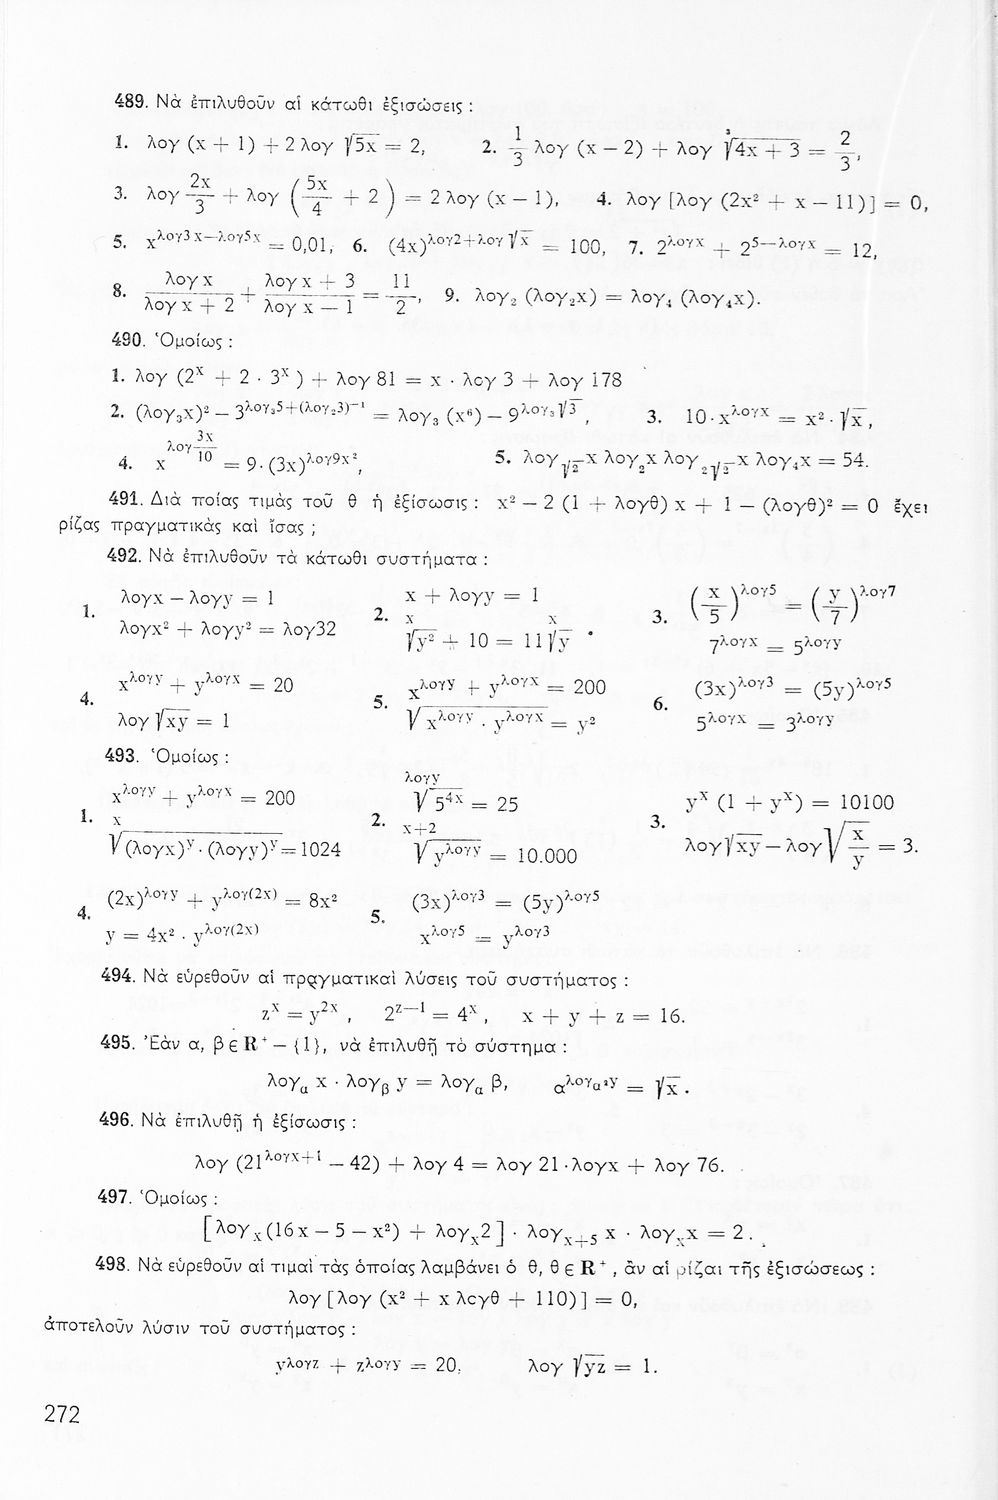 489. Νὰ ἐπιλυθοῦν αἱ κάτωθι ἐξισώσεις :
1. λογ (x + 1) + 2 λογ √5x = 2, 2. 1/3 λογ (x − 2) + λογ ³√4x + 3 = 2/3,
3. λογ 2x/3 + λογ (5x/4 + 2) = 2 λογ (x − 1), 4. λογ [λογ (2x² + x − 11)] = 0,
5. x^λογ3x−λογ5x = 0,01, 6. (4x)^λογ2+λογ√x = 100, 7. 2^λογx + 2^5−λογx = 12,
8. λογ x/λογ x + 2 + λογ x + 3/λογ x − 1 = 11/2, 9. λογ₂ (λογ₂x) = λογ₄ (λογ₄x).
490. Ὁμοίως :
1. λογ (2^x + 2 · 3^x) + λογ 81 = x · λογ 3 + λογ 178
2. (λογ₃x)² − 3^λογ₃5+(λογ₂3)⁻¹ = λογ₃ (x⁶) − 9^λογ₃√3, 3. 10·x^λογx = x² · √x,
4. x^λογ 3x/10 = 9·(3x)^λογ9x², 5. λογ_√2 x λογ₂x λογ_2√2 x λογ₄x = 54.
491. Διὰ ποίας τιμὰς τοῦ θ ἡ ἐξίσωσις : x² − 2 (1 + λογθ) x + 1 − (λογθ)² = 0 ἔχει
ρίζας πραγματικὰς καὶ ἴσας ;
492. Νὰ ἐπιλυθοῦν τὰ κάτωθι συστήματα :
1. λογx − λογy = 1
λογx² + λογy² = λογ32
2. x + λογy = 1
ˣ√y² + 10 = 11 ˣ√y ·
3. (x/5)^λογ5 = (y/7)^λογ7
7^λογx = 5^λογy
4. x^λογy + y^λογx = 20
λογ √xy = 1
5. x^λογy + y^λογx = 200
√x^λογy · y^λογx = y²
6. (3x)^λογ3 = (5y)^λογ5
5^λογx = 3^λογy
493. Ὁμοίως :
1. x^λογy + y^λογx = 200
ˣ√(λογx)^y · (λογy)^y = 1024
2. ^λογy√5^4x = 25
^x+2√y^λογy = 10.000
3. y^x (1 + y^x) = 10100
λογ √xy − λογ √x/y = 3.
4. (2x)^λογy + y^λογ(2x) = 8x²
y = 4x² · y^λογ(2x)
5. (3x)^λογ3 = (5y)^λογ5
x^λογ5 = y^λογ3
494. Νὰ εὑρεθοῦν αἱ πραγματικαὶ λύσεις τοῦ συστήματος :
z^x = y^2x , 2^z−1 = 4^x , x + y + z = 16.
495. Ἐὰν α, β ∈ R⁺ − {1}, νὰ ἐπιλυθῇ τὸ σύστημα :
λογ_α x · λογ_β y = λογ_α β, α^λογ_α²y = √x .
496. Νὰ ἐπιλυθῇ ἡ ἐξίσωσις :
λογ (21^λογx+1 − 42) + λογ 4 = λογ 21 · λογx + λογ 76.
497. Ὁμοίως :
[λογ_x(16x − 5 − x²) + λογ_x2] · λογ_x+5 x · λογ_x x = 2.
498. Νὰ εὑρεθοῦν αἱ τιμαὶ τὰς ὁποίας λαμβάνει ὁ θ, θ ∈ R⁺ , ἂν αἱ ρίζαι τῆς ἐξισώσεως :
λογ [λογ (x² + x λογθ + 110)] = 0,
ἀποτελοῦν λύσιν τοῦ συστήματος :
y^λογz + z^λογy = 20, λογ √yz = 1.
272